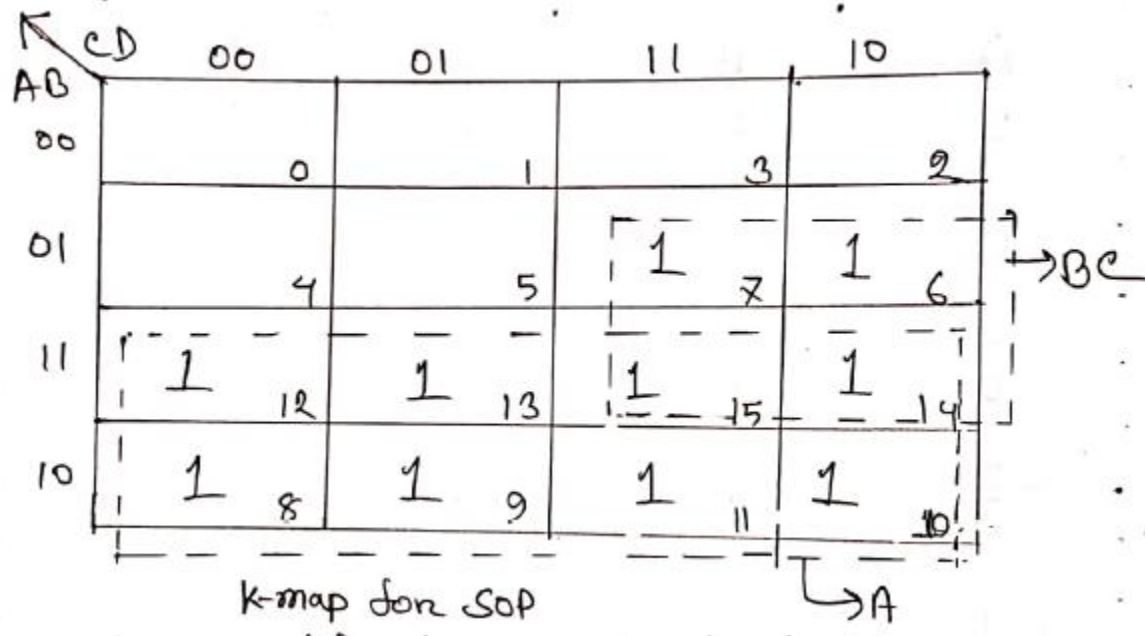 CD 00 01 11 10
AB
00 0 1 3 2
01 4 5 1 7 1 6 → BC
11 1 12 1 13 1 15 1 14
10 1 8 1 9 1 11 1 10
K-map for SOP → A